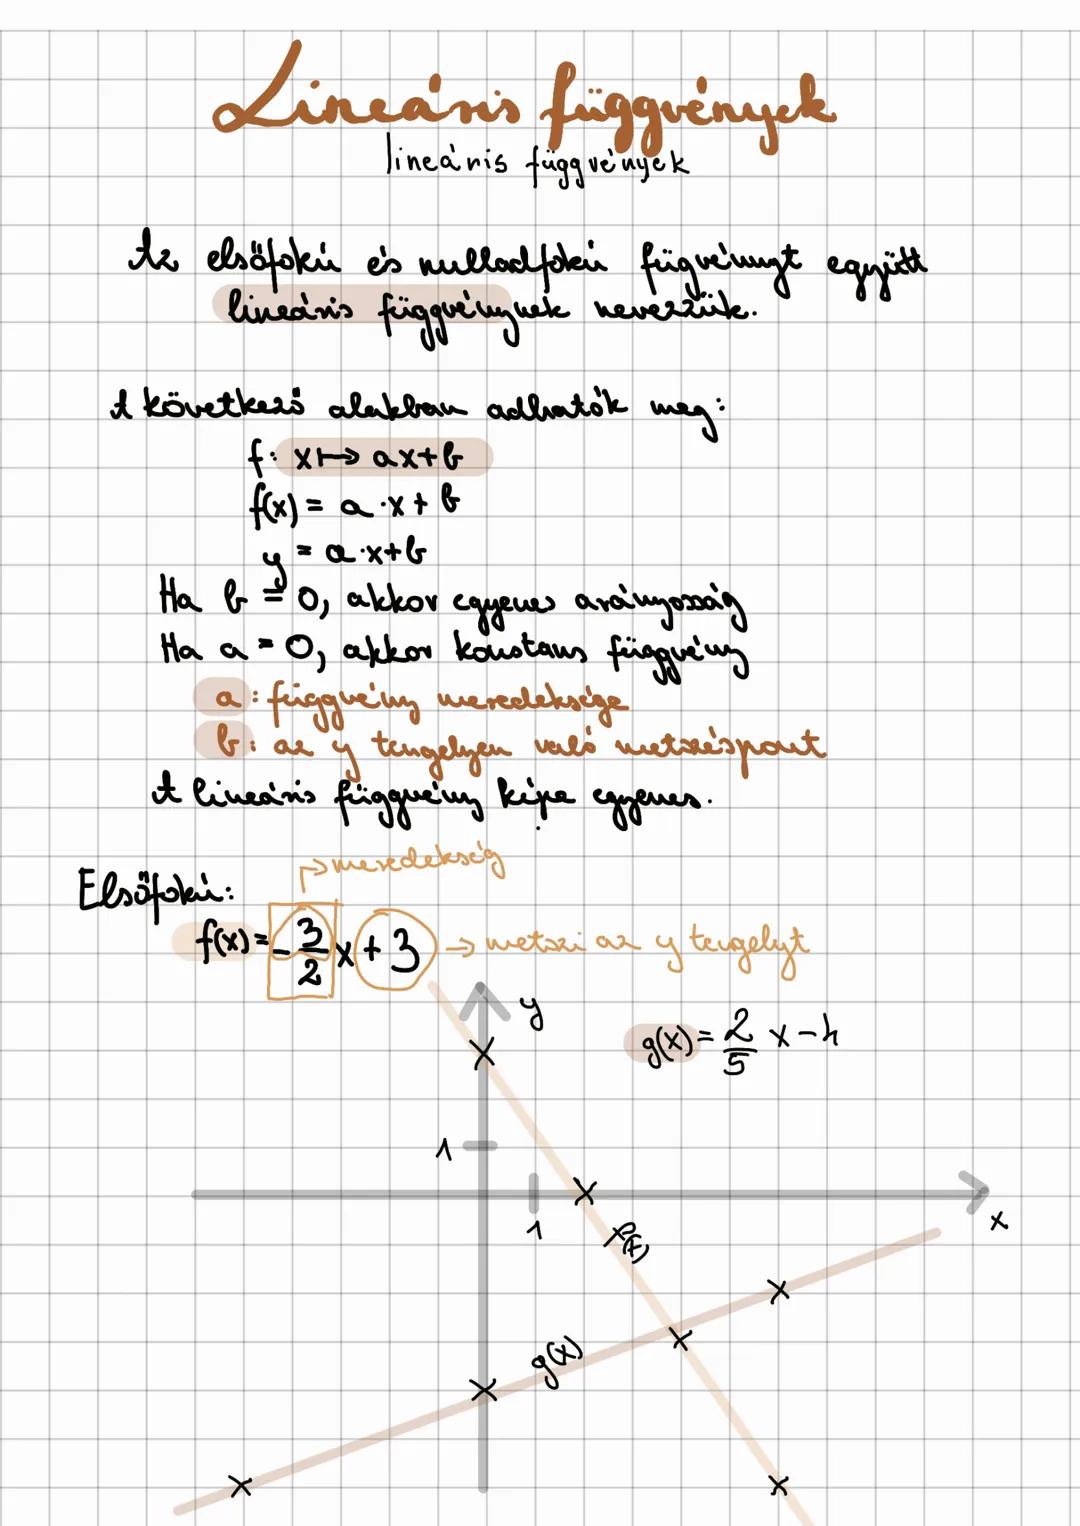 Lineáris függvények
lineáris függvények
Az elsőfokú és nulladfokú függvényt együtt
lineáris függvénynek nevezzük.
A következő alakban adhatók meg:
f: x↦ ax+b
f(x) = a·x + b
y = a·x+b
Ha b = 0, akkor egyenes arányosság
Ha a = 0, akkor konstans függvény
a: függvény meredeksége
b: az y tengelyen való metszéspont
A lineáris függvény képe egyenes.
→meredekség
Elsőfokú:
f(x)= -3/2 x + 3 → metszi az y tengelyt
y
g(x) = 2/5 x - 4
1
1
x
f(x)
g(x)